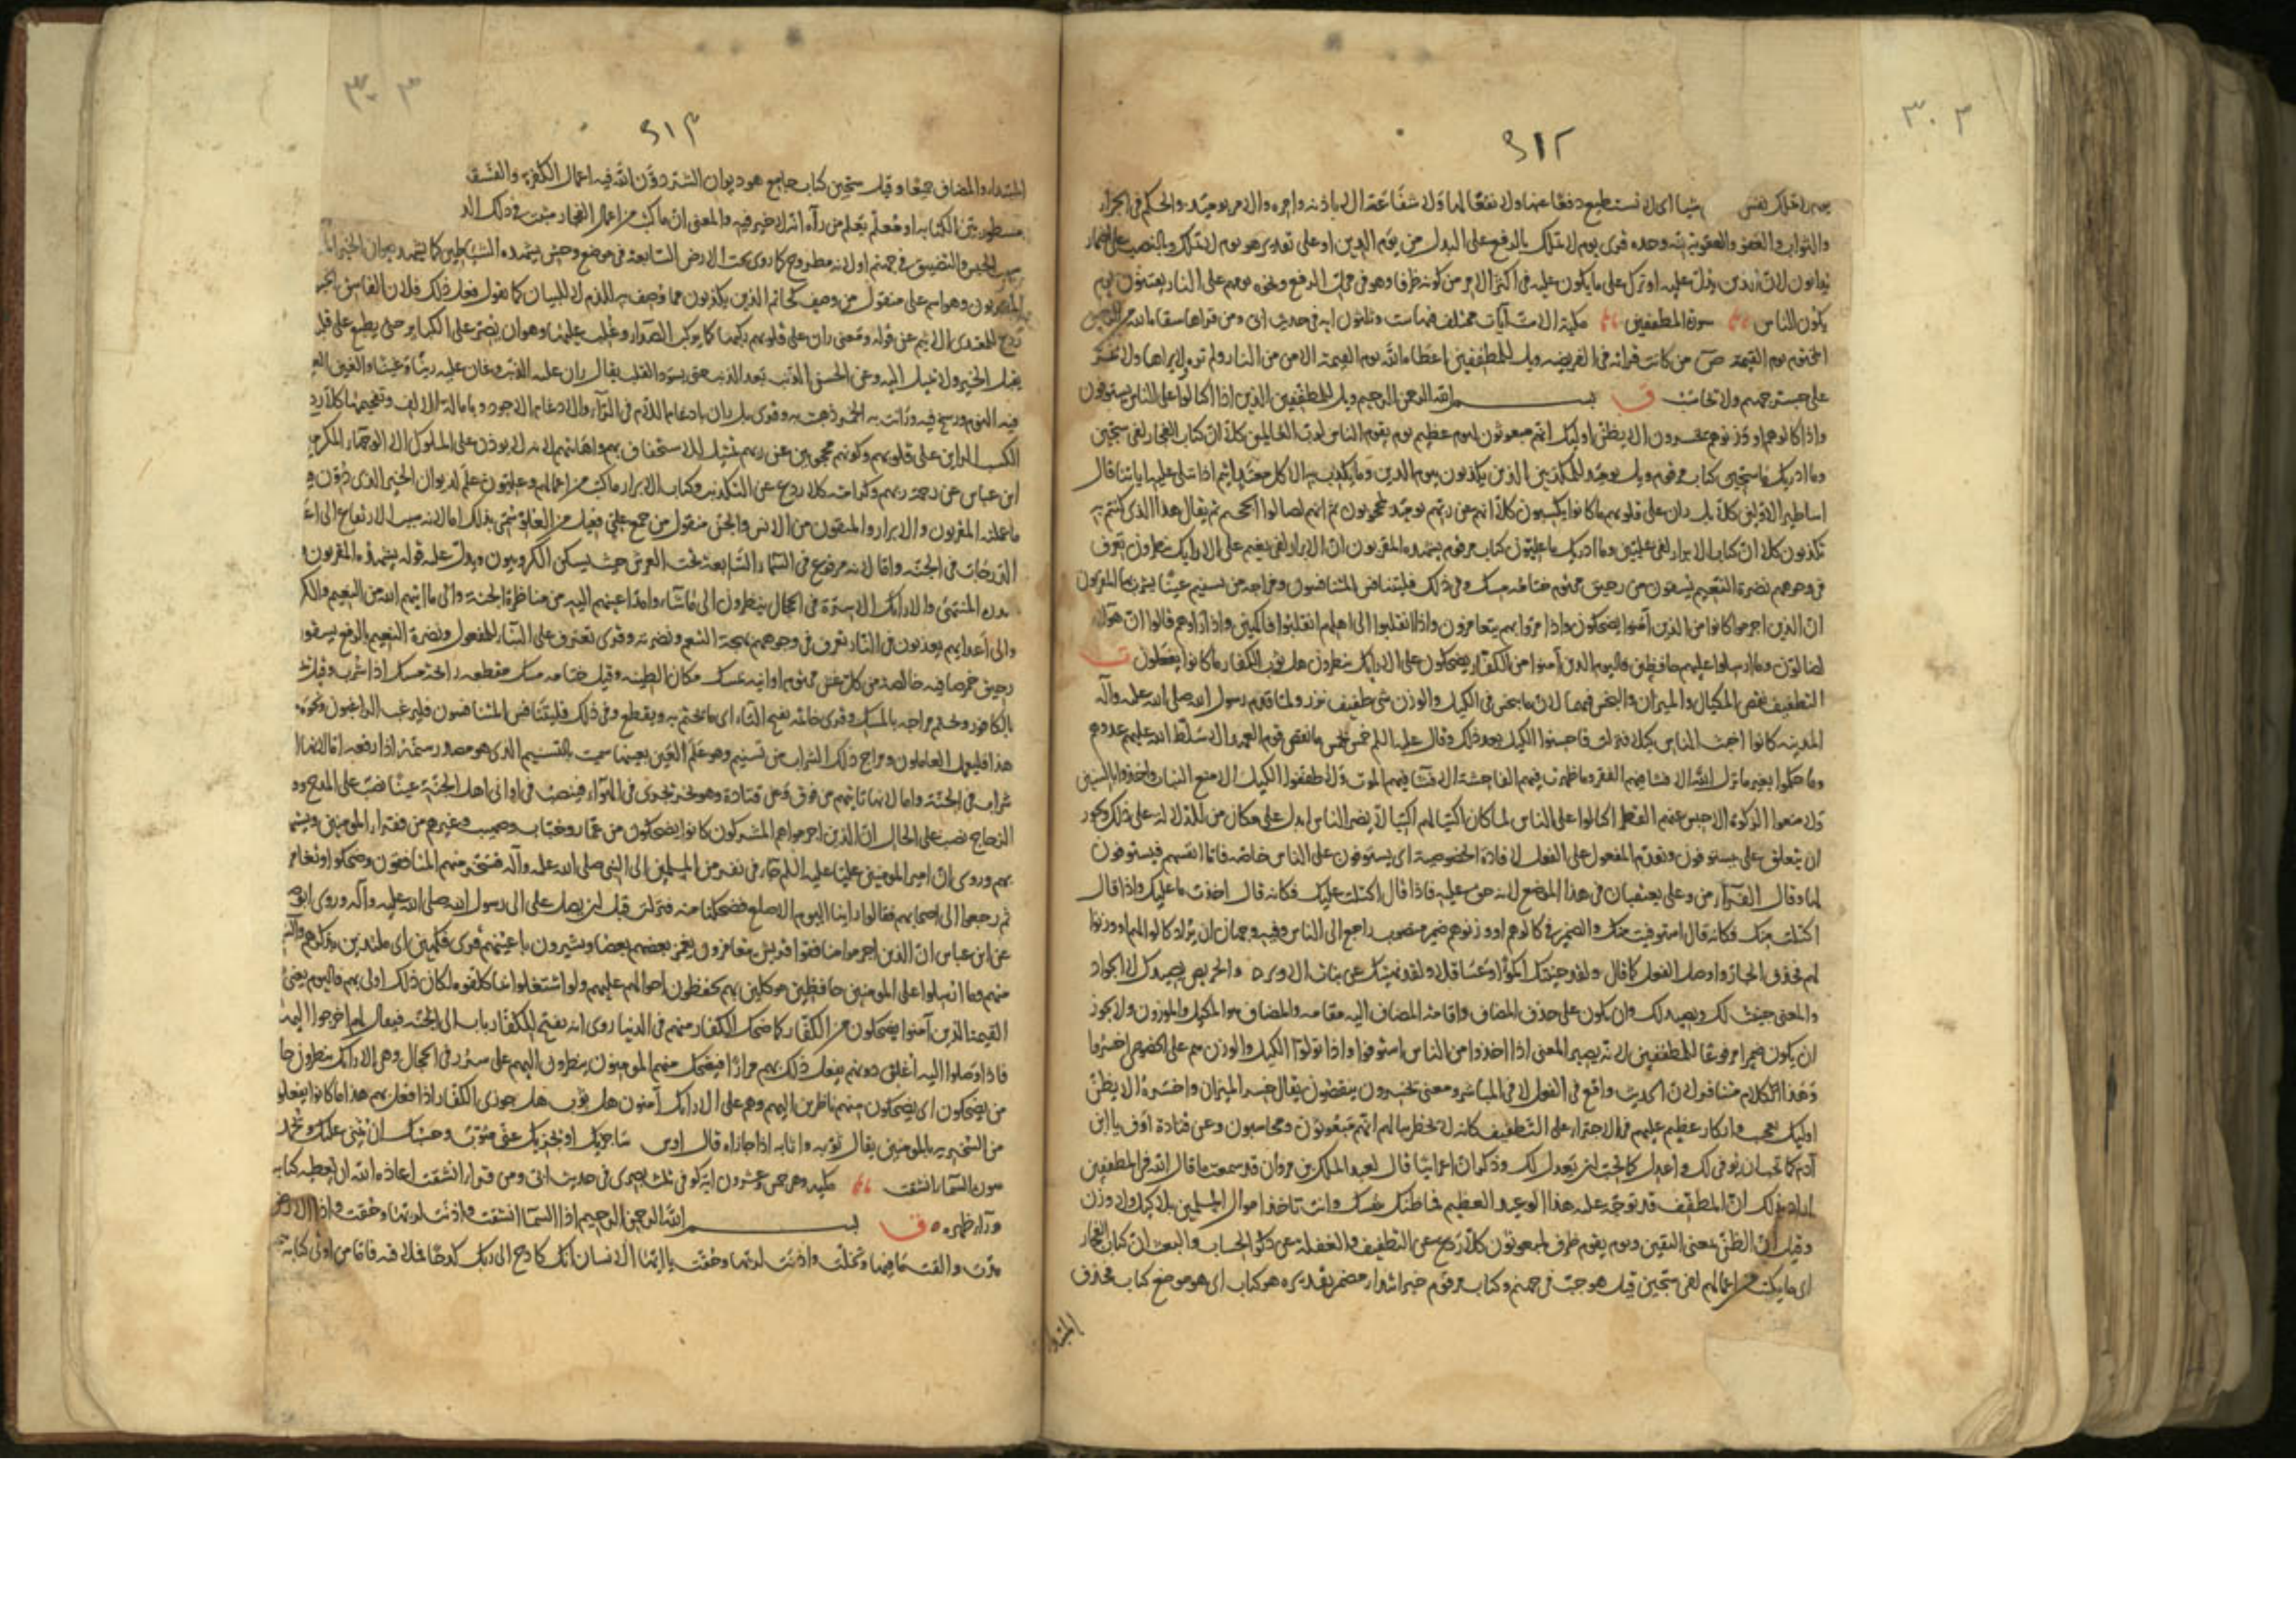 ٣٠٣
٣١٢
شيئا اى لا تستطيع دفعا عنها ولا نفعا لها ولا شفاعة الا باذنه وامره والامر يومئذ والحكم فى الجزاء
والثواب والعفو والعقوبة لله وحده قرى يوم لا تملك بالرفع على البدل من يوم الدين او على تقدير هو يوم لا تملك وبالنصب على اضمار
يدانون لان الدين يدل عليه او ترك على ما يكون عليه فى اكثر الامر من كونه ظرفا وهو فى محل الرفع ونحوه يوم هم على النار يفتنون يوم
يكون الناس سورة المطففين مكية الا ست آيات ست وثلثون آية فى حديث ابى ومن قراها سقاه الله من الرحيق
المختوم يوم القيمة ص من كانت قراته فى الفريضة ويل للمطففين اعطاه الله يوم القيمة الامن من النار ولم تره ولا يراها ولا يمر
على جسر جهنم ولا يحاسب ق بسم الله الرحمن الرحيم ويل للمطففين الذين اذا اكتالوا على الناس يستوفون
واذا كالوهم او وزنوهم يخسرون الا يظن اولئك انهم مبعوثون ليوم عظيم يوم يقوم الناس لرب العالمين كلا ان كتاب الفجار لفى سجين
وما ادريك ما سجين كتاب مرقوم ويل يومئذ للمكذبين الذين يكذبون بيوم الدين وما يكذب به الا كل معتد اثيم اذا تتلى عليه اياتنا قال
اساطير الاولين كلا بل ران على قلوبهم ما كانوا يكسبون كلا انهم عن ربهم يومئذ لمحجوبون ثم انهم لصالوا الجحيم ثم يقال هذا الذى كنتم به
تكذبون كلا ان كتاب الابرار لفى عليين وما ادريك ما عليون كتاب مرقوم يشهده المقربون ان الابرار لفى نعيم على الارايك ينظرون تعرف
فى وجوههم نضرة النعيم يسقون من رحيق مختوم ختامه مسك وفى ذلك فليتنافس المتنافسون ومزاجه من تسنيم عينا يشرب بها المقربون
ان الذين اجرموا كانوا من الذين آمنوا يضحكون واذا مروا بهم يتغامزون واذا انقلبوا الى اهلهم انقلبوا فاكهين واذا راوهم قالوا ان هؤلاء
لضالون وما ارسلوا عليهم حافظين فاليوم الذين آمنوا من الكفار يضحكون على الارايك ينظرون هل ثوب الكفار ما كانوا يفعلون
التطفيف نقص المكيال والميزان والبخس فيهما لان ما يبخس فى الكيل والوزن شى طفيف نزر ولما قدم رسول الله صلى الله عليه وآله
المدينه كانوا اخبث الناس كيلا فنزلت فاحسنوا الكيل بعد ذلك وقال عليه السلم خمس بخمس ما نقض قوم العهد الا سلط الله عليهم عدوهم
وما حكموا بغير ما نزل الله الا فشا فيهم الفقر وما ظهرت فيهم الفاحشة الا فشا فيهم الموت ولا طففوا الكيل الا منع النبات واخذوا بالسنين
ولا منعوا الزكوة الا حبس عنهم القطر اكتالوا على الناس لما كان اكتيالهم اكتيالا يضر الناس ابدل على مكان من للدلالة على ذلك ويجوز
ان يتعلق على بيستوفون وتقدم المفعول على الفعل لافادة الخصوصية اى يستوفون على الناس خاصة فاما انفسهم فيستوفون
لها وقال الفراء من وعلى يعتقبان فى هذا الموضع لانه حق عليه فاذا قال اكتلت عليك فكانه قال اخذت ما عليك واذا قال
اكتلت منك فكانه قال استوفيت منك والضمير فى كالوهم او وزنوهم ضمير منصوب راجع الى الناس وفيه وجهان ان يراد كالوا لهم او وزنوا
لهم فحذف الجار واوصل الفعل كما قال ولقد جنيتك اكمؤا وعساقلا ولقد نهيتك عن بنات الاوبر والحريص يصيدك لا الجواد
والمعنى جنيت لك ويصيد لك وان يكون على حذف المضاف واقامة المضاف اليه مقامه والمضاف هو المكيل والموزون ولا يجوز
ان يكون ضميرا مرفوعا للمطففين لانه يصير المعنى اذا اخذوا من الناس استوفوا واذا تولوا الكيل والوزن هم على الخصوص اخسروا
وهذا الكلام متنافر لان الحديث واقع فى الفعل لا فى المباشر ومعنى يخسرون ينقصون يقال خسر الميزان واخسره الا يظن
اولئك تعجيب وانكار عظيم عليهم فى الاجتراء على التطفيف كانه لا يخطر ببالهم انهم مبعوثون ومحاسبون وعن قتادة اوف يا ابن
آدم كما تحب ان يوفى لك واعدل كما تحب ان يعدل لك وذكر ان اعرابيا قال لعبد الملك بن مروان قد سمعت ما قال الله فى المطففين
اراد بذلك ان المطفف قد توجه عليه هذا الوعيد العظيم فما ظنك بنفسك وانت تاخذ اموال المسلمين بلا كيل ولا وزن
وقيل ان الظن بمعنى اليقين ويوم يقوم ظرف لمبعوثون كلا ردع عن التطفيف والغفلة عن ذكر الحساب والبعث ان كتاب الفجار
اى ما يكتب من اعمالهم لفى سجين قيل هو جب فى جهنم وكتاب مرقوم خبر مبتدا مضمر تقديره هو كتاب اى هو موضع كتاب فحذف
المبتداء
٣٠٣
٣١٣
المبتداء والمضاف جميعا وقيل سجين كتاب جامع هو ديوان الشر دون الله فيه اعمال الكفرة والفسقة
مسطور بين الكتابة او معلم يعلم من رآه انه لا خير فيه والمعنى ان ما كتب من اعمال الفجار مثبت فى ذلك
الحبس والتضييق فى جهنم او لانه مطروح كما روى تحت الارض السابعة فى موضع وحش يشهده الشياطين كما يشهد ديوان الخير
المقربون وهو اسم علم منقول من وصف كحاتم الذين يكذبون مما وصف به للذم لا للبيان كما تقول فعل ذلك فلان الفاسق الخبيث
ردع للمعتدى الاثيم عن قوله ومعنى ران على قلوبهم ركبها كما يركب الصداء وغلب عليها وهو ان يصر على الكباير حتى يطبع على قلبه
يقبل الخير ولا يميل اليه وعن الحسن الذنب بعد الذنب حتى يسود القلب يقال ران عليه الذنب وغان عليه رينا وغينا والغين الغيم
فيه النوم ورسخ فيه ورانت به الخمر ذهبت به وقرى بل ران بادغام اللام فى الراء والادغام الاجود وبامالة الالف وتفخيمها كلا ردع
الكسب الراين على قلوبهم وكونهم محجوبين عن ربهم تمثيل للاستخفاف بهم واهانتهم لانه لا يوذن على الملوك الا الوجهاء المكرمين
ابن عباس عن رحمة ربهم وكرامته كلا ردع عن التكذيب وكتاب الابرار ما كتب من اعمالهم وعليون علم لديوان الخير الذى دون فيه
ما عملته المقربون والابرار والمتقون من الانس والجن منقول من جمع على فعيل من العلو سمى بذلك اما لانه سبب الارتفاع الى اعلى
الدرجات فى الجنة واما لانه مرفوع فى السماء السابعة تحت العرش حيث يسكن الكروبيون ويدل عليه قوله يشهده المقربون
سدرة المنتهى والارائك الاسرة فى الحجال ينظرون الى ما شاءوا مد اعينهم اليه من مناظرة الجنة والى ما اتيهم الله من النعيم والكرامة
والى اعدائهم يعذبون فى النار تعرف فى وجوههم بهجة التنعم ونضرته وقرى تعرف على البناء للمفعول ونضرة النعيم بالرفع يسقون
رحيق خمر صافية خالصة من كل غش مختوم اوانيه بمسك مكان الطينة وقيل ختامه مسك مقطعه رايحة مسك اذا شرب وقيل
بالكافور ويختم مزاجه بالمسك وقرى خاتمه بفتح التاء اى ما يختم به ويقطع وفى ذلك فليتنافس المتنافسون فليرغب الراغبون ونحوه
هذا فليعمل العاملون ومزاج ذلك الشراب من تسنيم وهو علم لعين بعينها سميت بالتسنيم الذى هو مصدر سنمه اذا رفعه اما لانها ارفع
شراب فى الجنة واما لانها تاتيهم من فوق وعن قتادة وهو نهر يجرى فى الهواء فينصب فى اوانى اهل الجنة عينا نصب على المدح
الزجاج نصب على الحال ان الذين اجرموا هم المشركون كانوا يضحكون من عمار وخباب وصهيب وغيرهم من فقراء المومنين
بهم وروى ان امير المومنين عليا عليه السلم جاء فى نفر من المسلمين الى النبى صلى الله عليه وآله فسخر منهم المنافقون وضحكوا وتغامزوا
ثم رجعوا الى اصحابهم فقالوا راينا اليوم الاصلع فضحكنا منه فنزلت قبل ان يصل على الى رسول الله صلى الله عليه وآله وروى
عن ابن عباس ان الذين اجرموا منافقوا قريش يتغامزون يغمز بعضهم بعضا ويشيرون باعينهم قرى فكهين اى ملتذين بذكرهم
منهم وما ارسلوا على المومنين حافظين موكلين بهم يحفظون احوالهم عليهم ولو اشتغلوا بما كلفوه لكان ذلك اولى بهم فاليوم يعنى يوم
القيمة الذين آمنوا يضحكون من الكفار كما ضحك الكفار منهم فى الدنيا روى انه يفتح للكفار باب الى الجنة فيقال لهم اخرجوا اليها
فاذا وصلوا اليه اغلق دونهم يفعل ذلك بهم مرارا فيضحك منهم المومنون ينظرون اليهم على سرر فى الحجال وهى الارائك ينظرون حال
من يضحكون اى يضحكون منهم ناظرين اليهم وهم على الارائك آمنون هل ثوب هل جوزى الكفار اذا فعل بهم هذا ما كانوا يفعلون
من السخرية بالمومنين يقال ثوبه واثابه اذا جازاه قال اوس ساجزيك او يجزيك عنى مثوب وحسبك ان يثنى عليك وتحمد
سورة السماء انشقت مكيه وهى خمس وعشرون اية كوفى ثلث بصرى فى حديث ابى ومن قرا انشقت اعاذه الله ان يعطيه كتابه
وراء ظهره ق بسم الله الرحمن الرحيم اذا السماء انشقت واذنت لربها وحقت واذا الارض
مدت والقت ما فيها وتخلت واذنت لربها وحقت يا ايها الانسان انك كادح الى ربك كدحا فملاقيه فاما من اوتى كتابه